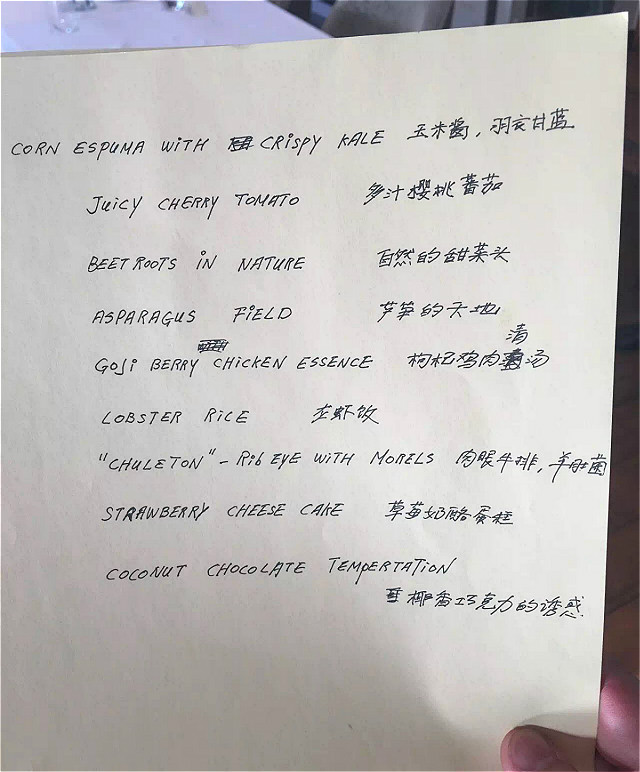 CORN ESPUMA WITH CRISPY KALE 玉米酱，羽衣甘蓝
JUICY CHERRY TOMATO 多汁樱桃蕃茄
BEETROOTS IN NATURE 自然的甜菜头
ASPARAGUS FIELD 芦笋的天地
GOJI BERRY CHICKEN ESSENCE 枸杞鸡肉清汤
LOBSTER RICE 龙虾饭
"CHULETON" - RIB EYE WITH MORELS 肉眼牛排，羊肚菌
STRAWBERRY CHEESE CAKE 草莓奶酪蛋糕
COCONUT CHOCOLATE TEMPERTATION
椰香巧克力的诱惑